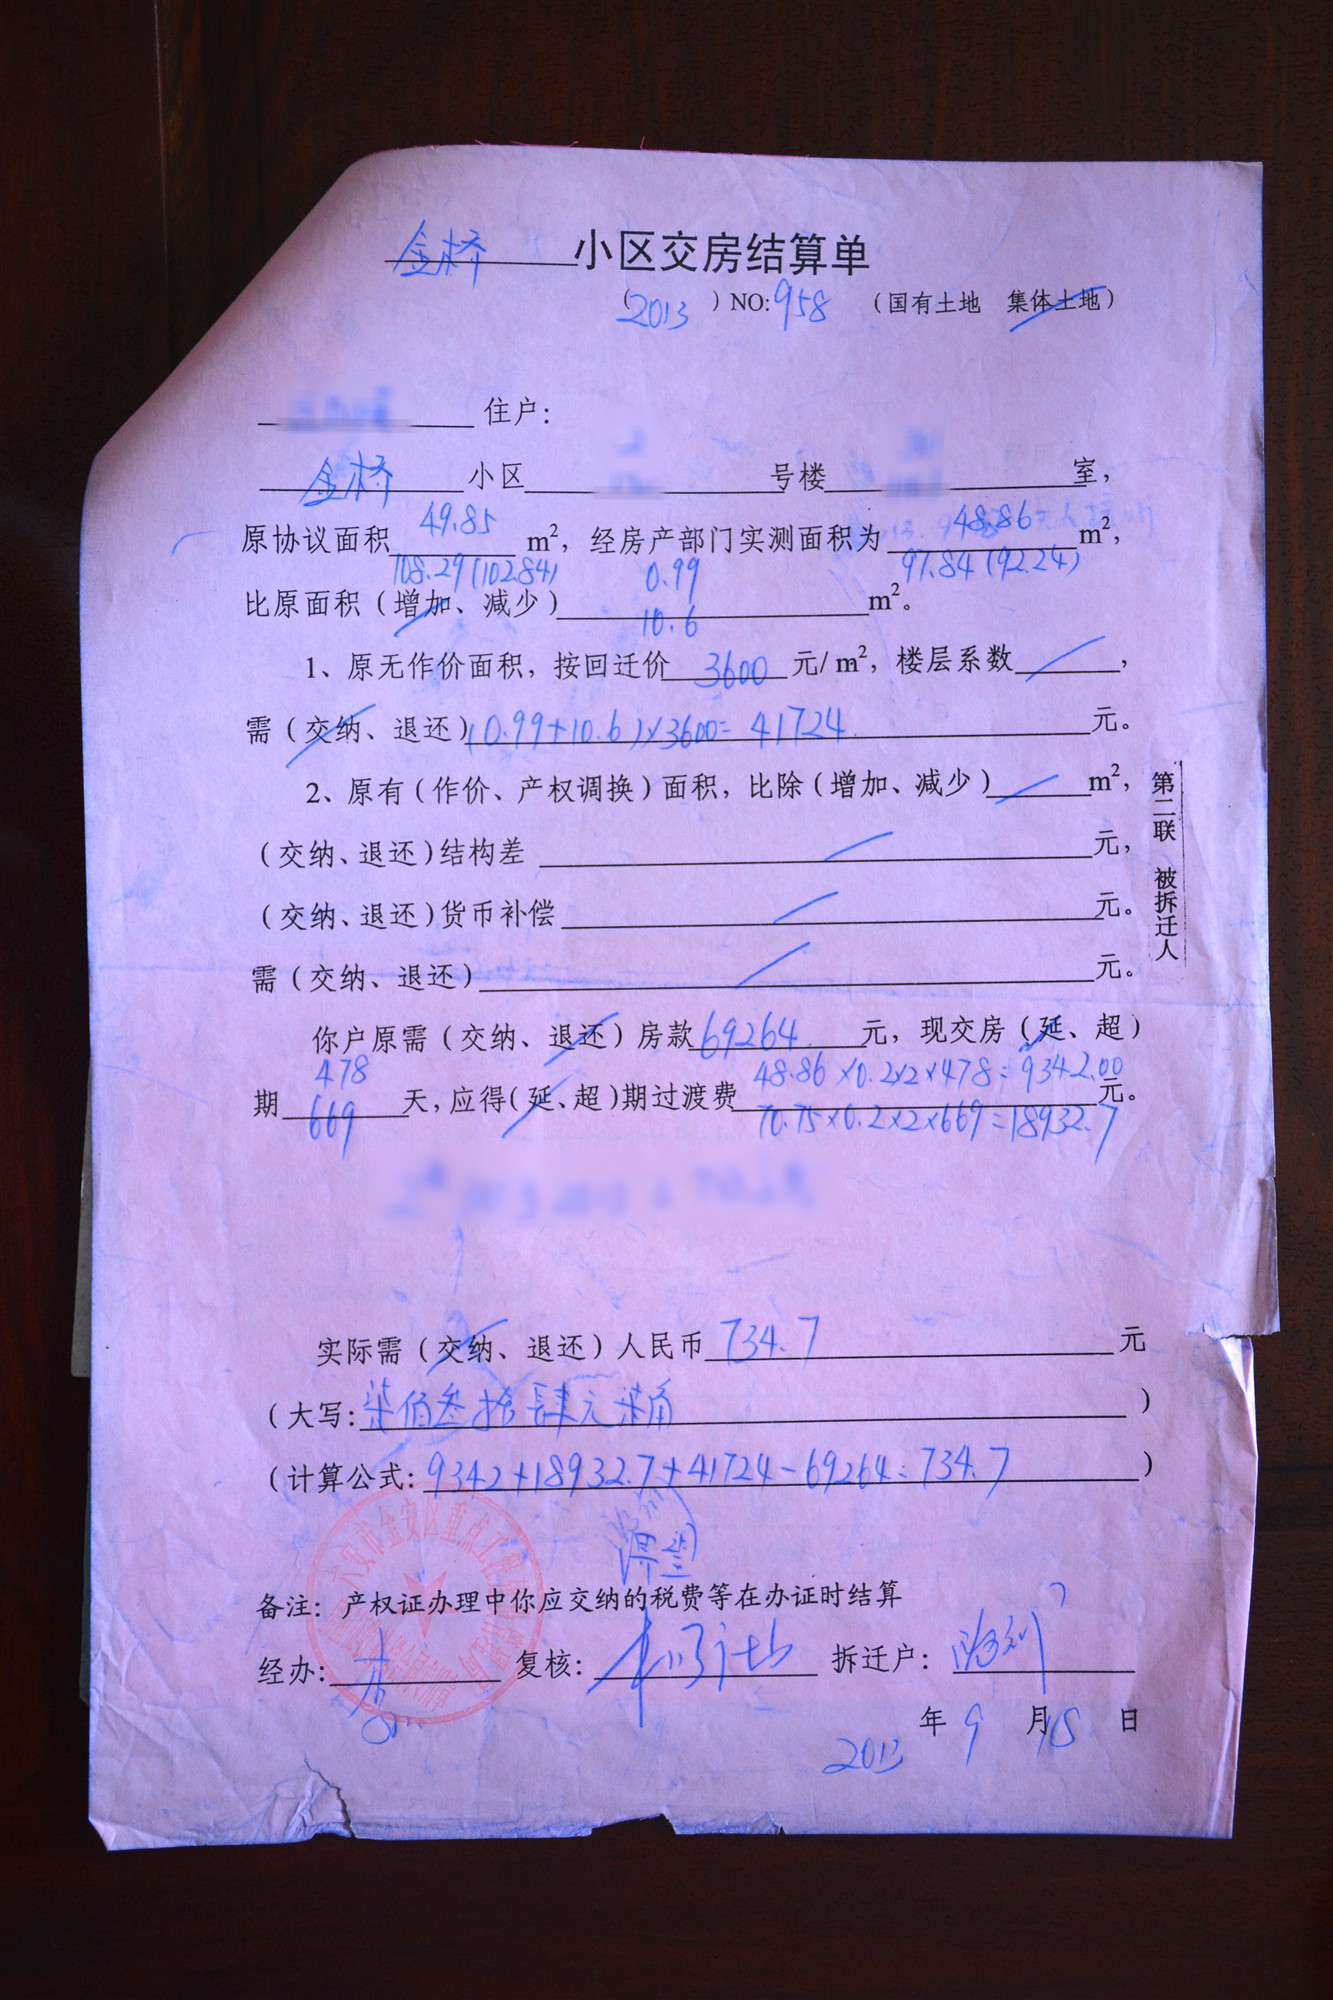 金桥 小区交房结算单
(2013) NO:958 (国有土地 集体土地)
住户:
金桥 小区 号楼 室,
49.85 48.86
原协议面积 m², 经房产部门实测面积为 m²,
108.29(102.84) 0.99 97.84(92.24)
比原面积(增加、减少) m²。
10.6
1、原无作价面积, 按回迁价 3600 元/m², 楼层系数 ,
需(交纳、退还)(0.99+10.6)×3600=41724 元。
2、原有(作价、产权调换)面积, 比除(增加、减少) m²,
(交纳、退还)结构差 元,
(交纳、退还)货币补偿 元。
需(交纳、退还) 元。
你户原需(交纳、退还)房款 69264 元, 现交房(延、超)
478 48.86×0.2×2×478=9342.00
期 天, 应得(延、超)期过渡费 元。
669 70.75×0.2×2×669=18932.7
实际需(交纳、退还)人民币 734.7 元
(大写: 柒佰叁拾肆元柒角 )
(计算公式: 9342+18932.7+41724-69264=734.7 )
备注: 产权证办理中你应交纳的税费等在办证时结算
经办: 复核: 拆迁户:
2013 年 9 月 15 日
第二联 被拆迁人